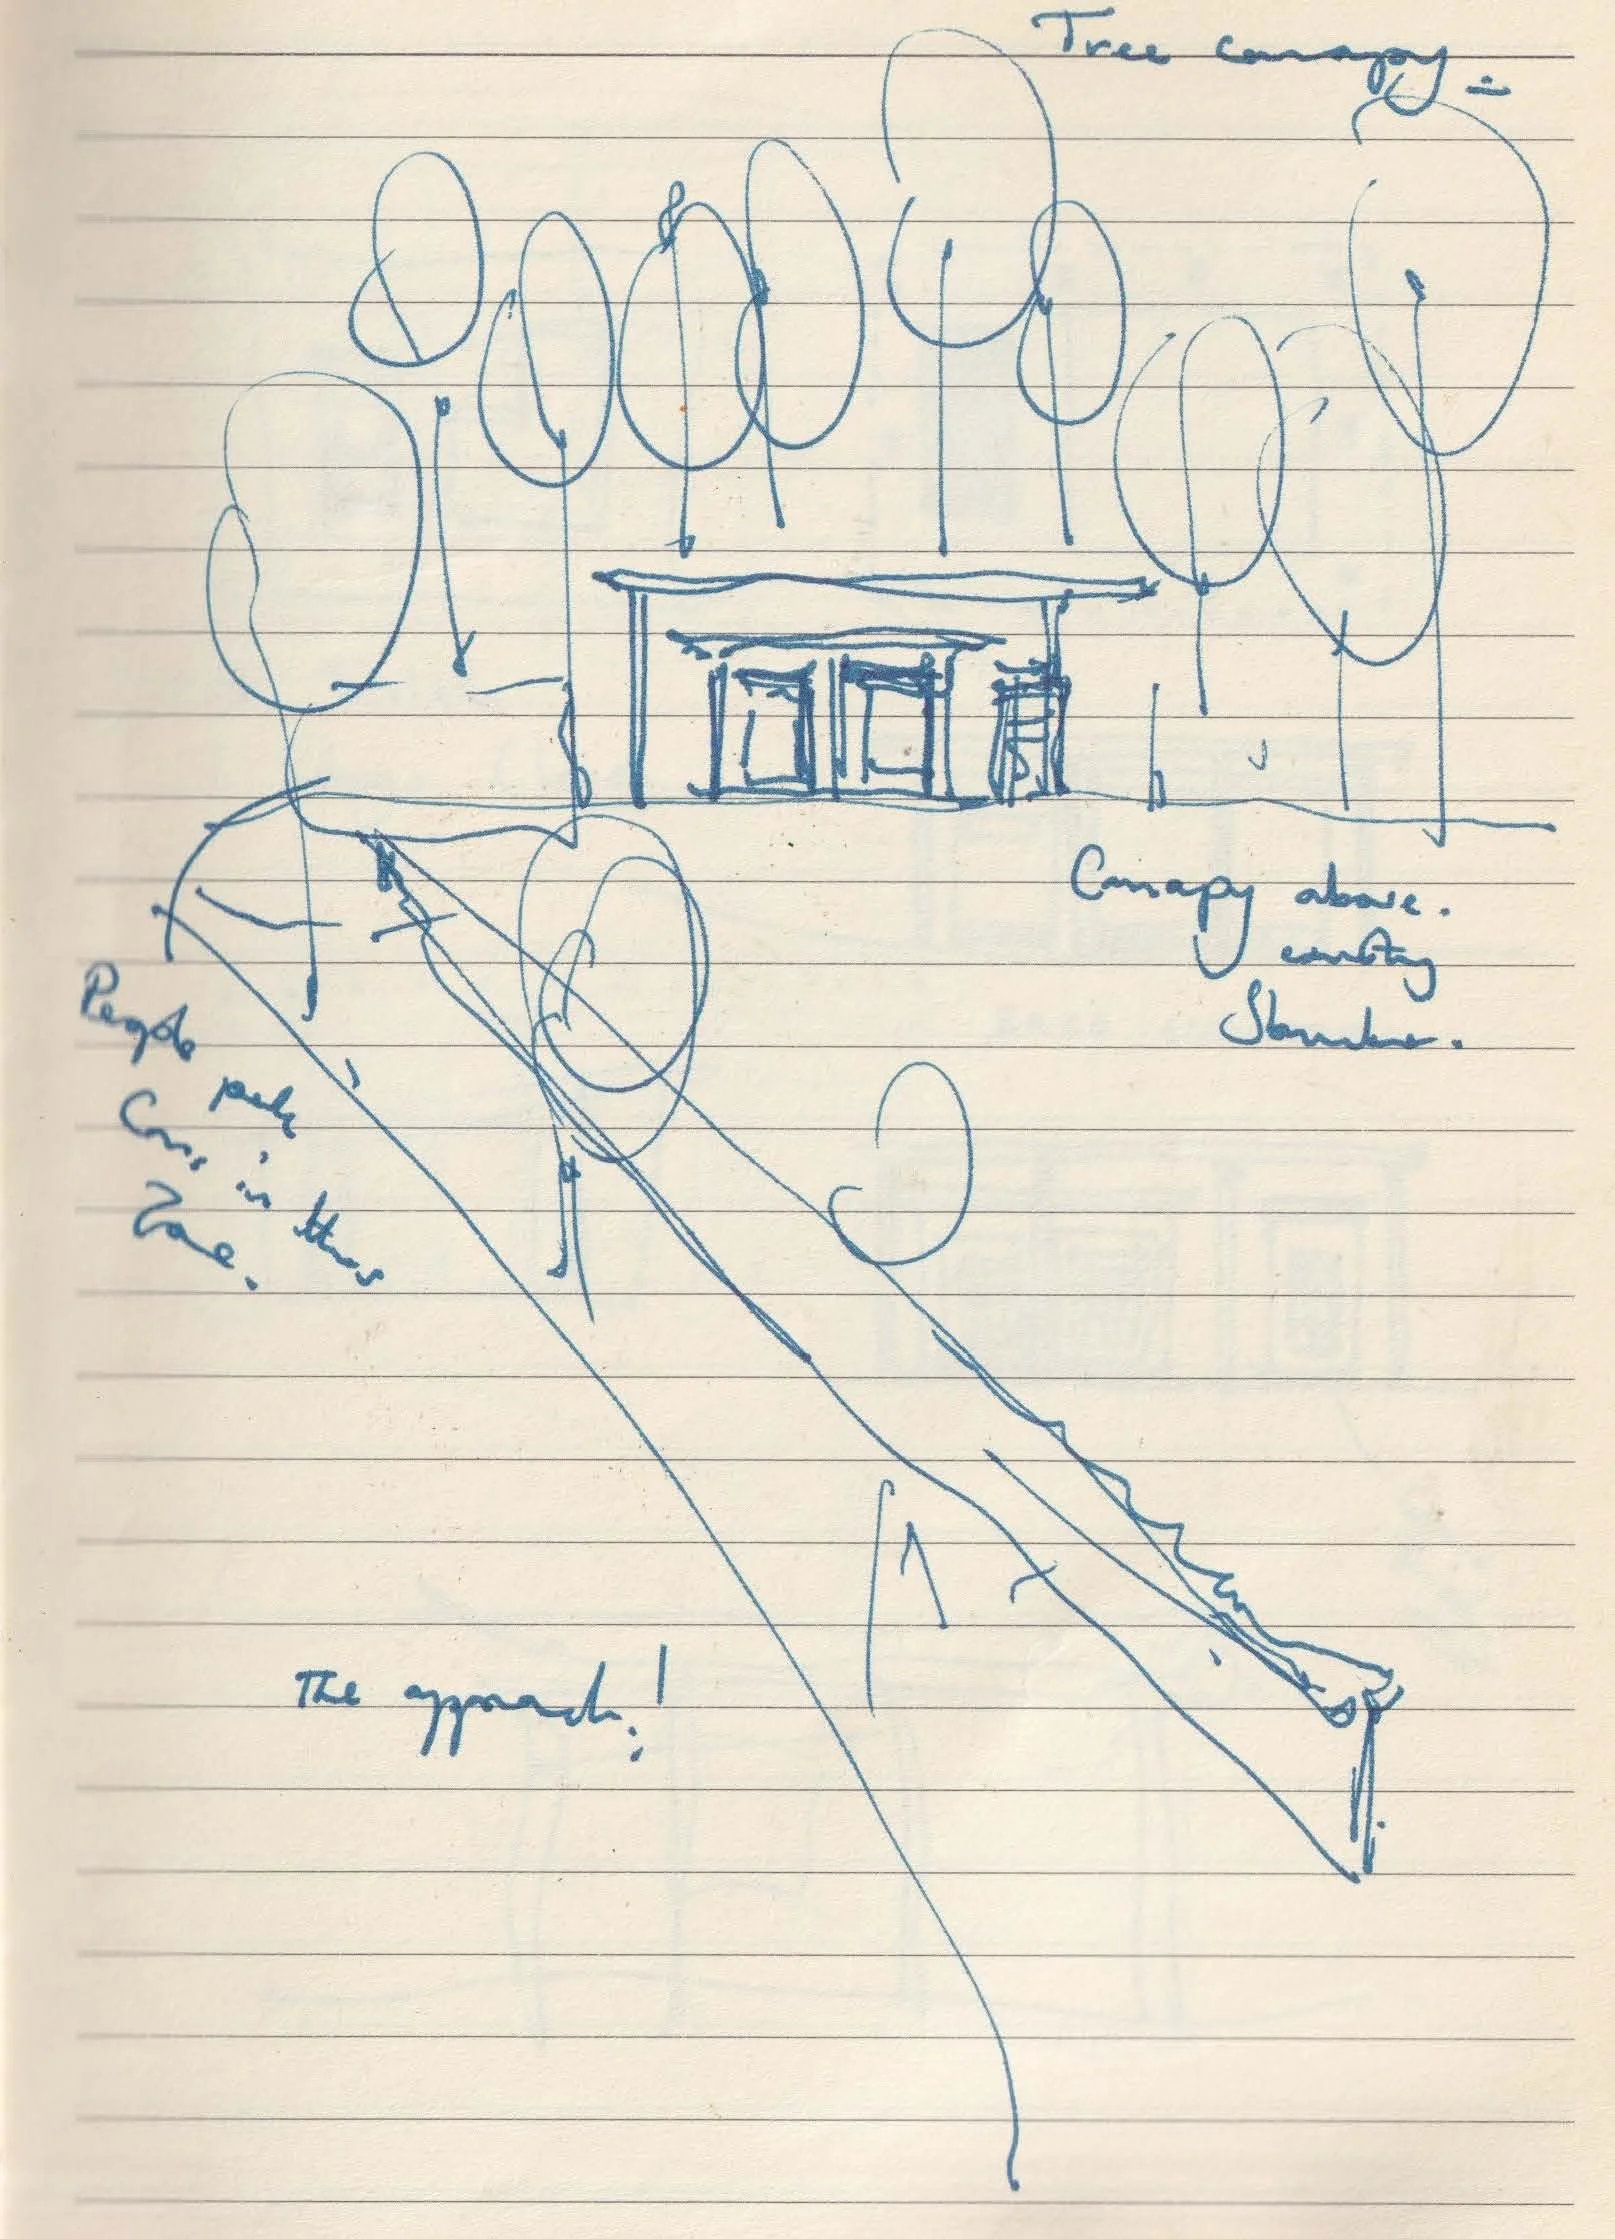 Tree canopy
Canopy above.
People park
Cars in this
Zone.
The approach!